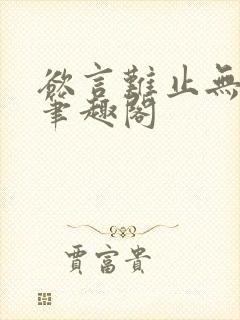 欲言難止無
筆趣閣
賈富貴